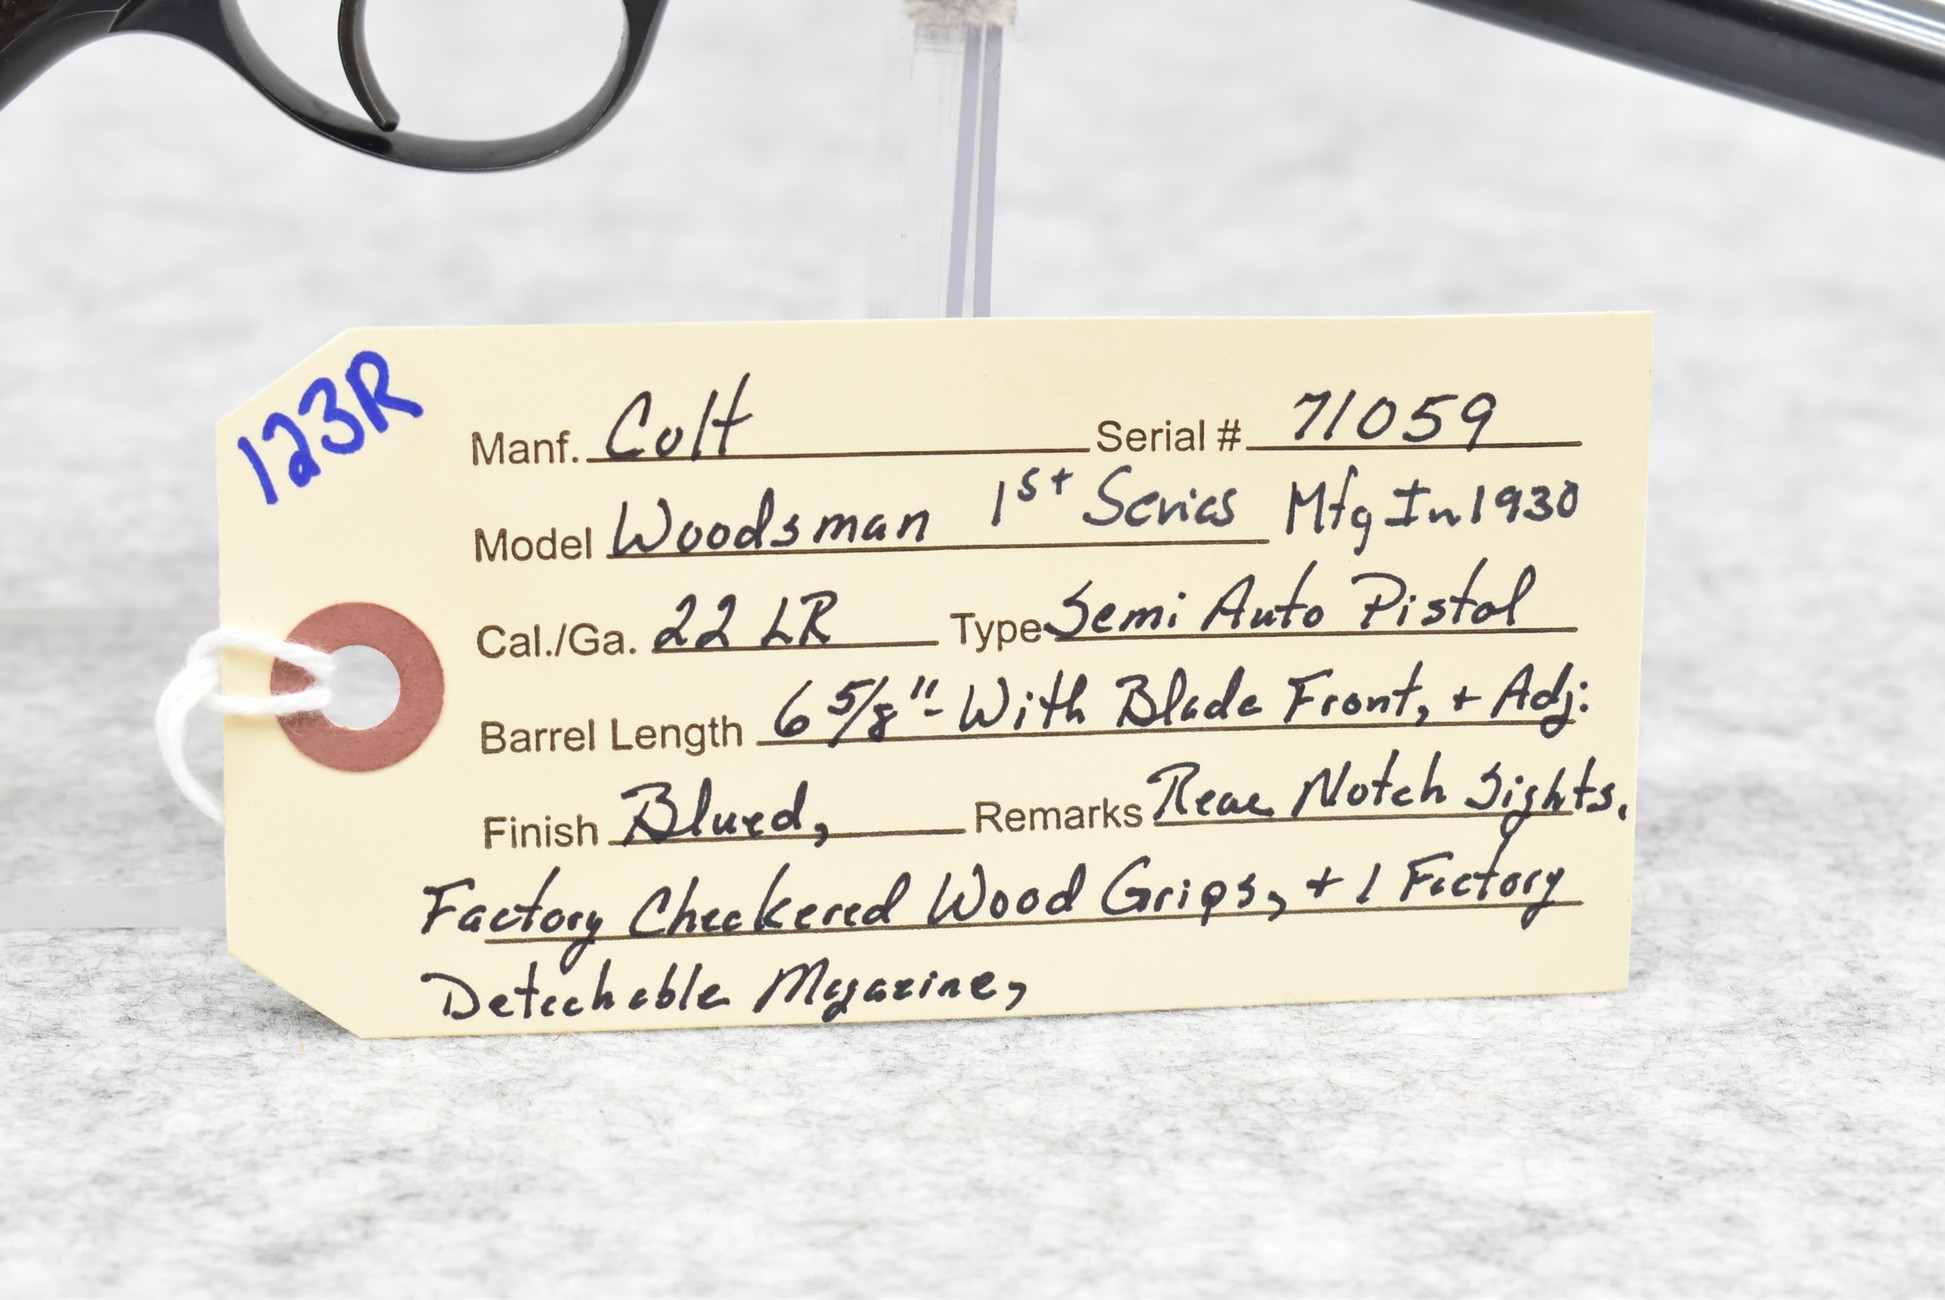 123R
Manf. Colt Serial # 71059
Model Woodsman 1st Series Mfg In 1930
Cal./Ga. 22 LR Type Semi Auto Pistol
Barrel Length 6 5/8"- With Blade Front, + Adj:
Finish Blued, Remarks Rear Notch Sights.
Factory Checkered Wood Grips, + 1 Factory
Detachable Magazine,